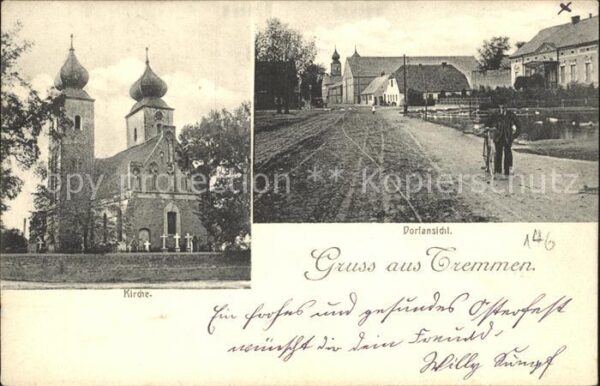 copy protection Kopierschutz
Dorfansicht.
146
Kirche.
Gruss aus Tremmen.
Ein frohes und gesundes Osterfest
wünscht dir dein Freund.
Willy Sumpf